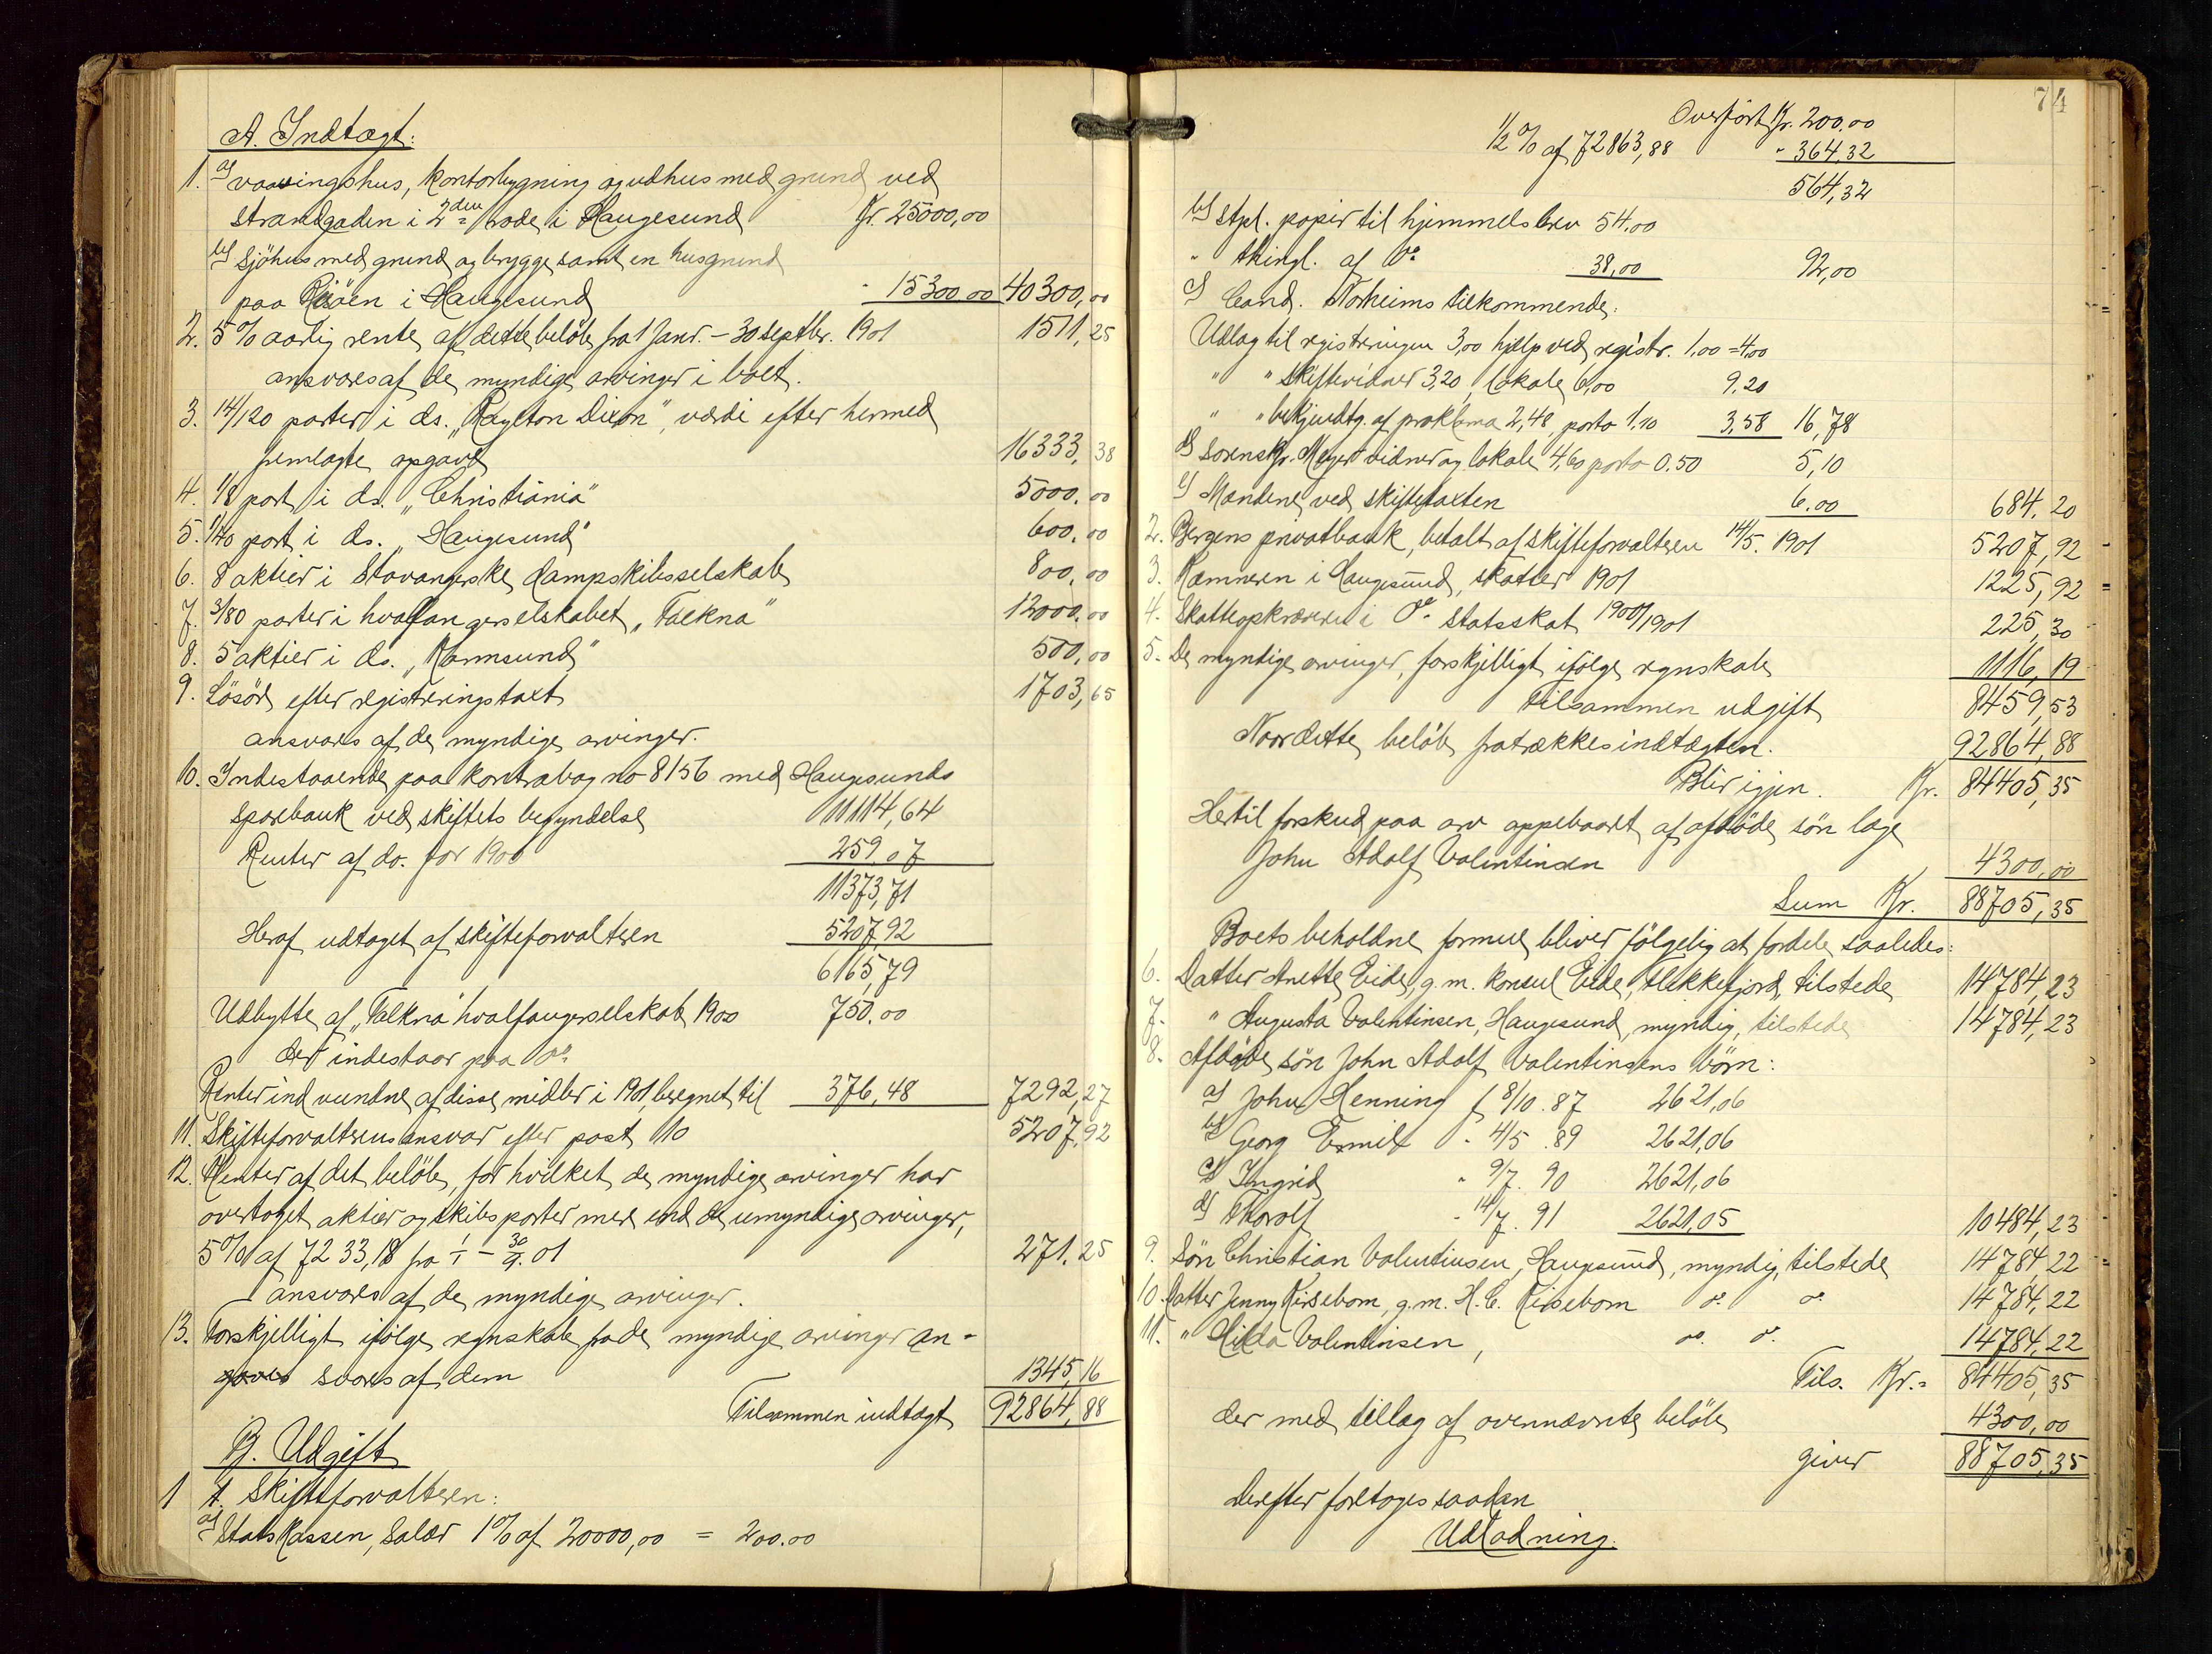 A. Indtægt:
1. a) vaaningshus, kontorbygning og udhus med grund ved
Strandgaden i 2den rode i Haugesund Kr. 25000,00
b) Sjöhus med grund og brygge samt en husgrund
paa Risöen i Haugesund - 15300,00 40300,00
2. 5% aarlig rente af dette beløb fra 1 Janr. – 30 septbr. 1901 1511,25
ansvares af de myndige arvinger i boet.
3. 14/120 parter i ds. „Raylton Dixon", værdi efter hermed
fremlagte opgave 16333,38
4. 1/8 part i ds. „Christiania" 5000,00
5. 1/40 part i ds. „Haugesund" 600,00
6. 8 aktier i Stavangerske dampskibsselskab 800,00
7. 3/80 parter i hvalfangerselskabet „Talkna" 12000,00
8. 5 aktier i ds. „Karmsund" 500,00
9. Lösöre efter registreringstaxt 1703,65
ansvares af de myndige arvinger.
10. Indestaaende paa kontrabog no 8156 med Haugesunds
sparebank ved skiftets begyndelse 11114,64
Renter af do. for 1900 259,07
11373,71
Heraf udtaget af skifteforvalteren 5207,92
6165,79
Udbytte af „Talkna" hvalfangerselskab 1900 750,00
der indestaar paa do.
Renter indvundne af disse midler i 1901, beregnet til 376,48 7292,27
11. Skifteforvalterens ansvar efter post 10 5207,92
12. Renter af det beløb, for hvilket de myndige arvinger har
overtaget aktier og skibsparter mere end de umyndige arvinger,
5% af 7233,18 fra 1/1 – 30/9. 01 271,25
ansvares af de myndige arvinger.
13. Forskjelligt ifölge regnskab fra de myndige arvinger an-
svares af dem 1345,16
Tilsammen indtægt 92864,88
B. Udgift
1 A. Skifteforvalteren:
a) Statskassen, Salær 1% af 20000,00 = 200.00
74
Overfört Kr. 200,00
1/2 % af 72863,88 - 364,32
564,32
b) Stpl. papir til hjemmelsbrev 54,00
" thingl. af do. 38,00 92,00
c) Cand. Norheims tilkommende:
Udlag til registreringen 3,00 hjælp ved registr. 1,00 = 4,00
" " Skiftevidner 3,20, lokale 6,00 9,20
" " bekjendtg. af proklama 2,48, porto 1.10 3,58 16,78
d) Sorenskr. Meyer vidner og lokale 4,60 porto 0.50 5,10
e) Mændene ved skiftetaxten 6.00 684,20
2. Bergens privatbank, betalt af skifteforvalteren 14/5. 1901 5207,92
3. Kæmneren i Haugesund, skatter 1901 1225,92
4. Skatteopkræveren i do. statsskat 1900/1901 225,30
5. De myndige arvinger, forskjelligt ifölge regnskab 1116,19
Tilsammen udgift 8459,53
Naar dette beløb fratrækkes indtægten. 92864,88
Blir igjen. Kr. 84405,35
Hertil forskud paa arv oppebaaret af afdöde sön læge
John Adolf Valentinsen 4300,00
Sum Kr. 88705,35
Boets beholdne formue bliver fölgelig at fordele saaledes:
6. Datter Anette Eide, g.m. konsul Eide, Flekkefjord, tilstede 14784,23
7. " Augusta Valentinsen, Haugesund, myndig, tilstede 14784,23
8. Afdöde sön John Adolf Valentinsens börn:
a) John Henning f 8/10. 87 2621,06
b) Georg Emil - 4/5 .89 2621,06
c) Ingrid - 9/7. 90 2621,06
d) Thorolf - 14/7. 91 2621,05 10484,23
9. Sön Christian Valentinsen, Haugesund, myndig, tilstede 14784,22
10. Datter Jenny Kirsebom, g.m. H. C. Kirsebom do. do. 14784,22
11. " Hilda Valentinsen, do. do. 14784,22
Tils. Kr. 84405,35
der med tillæg af ovennævnte beløb 4300,00
giver 88705,35
Derefter foretoges saadan
Udlodning.